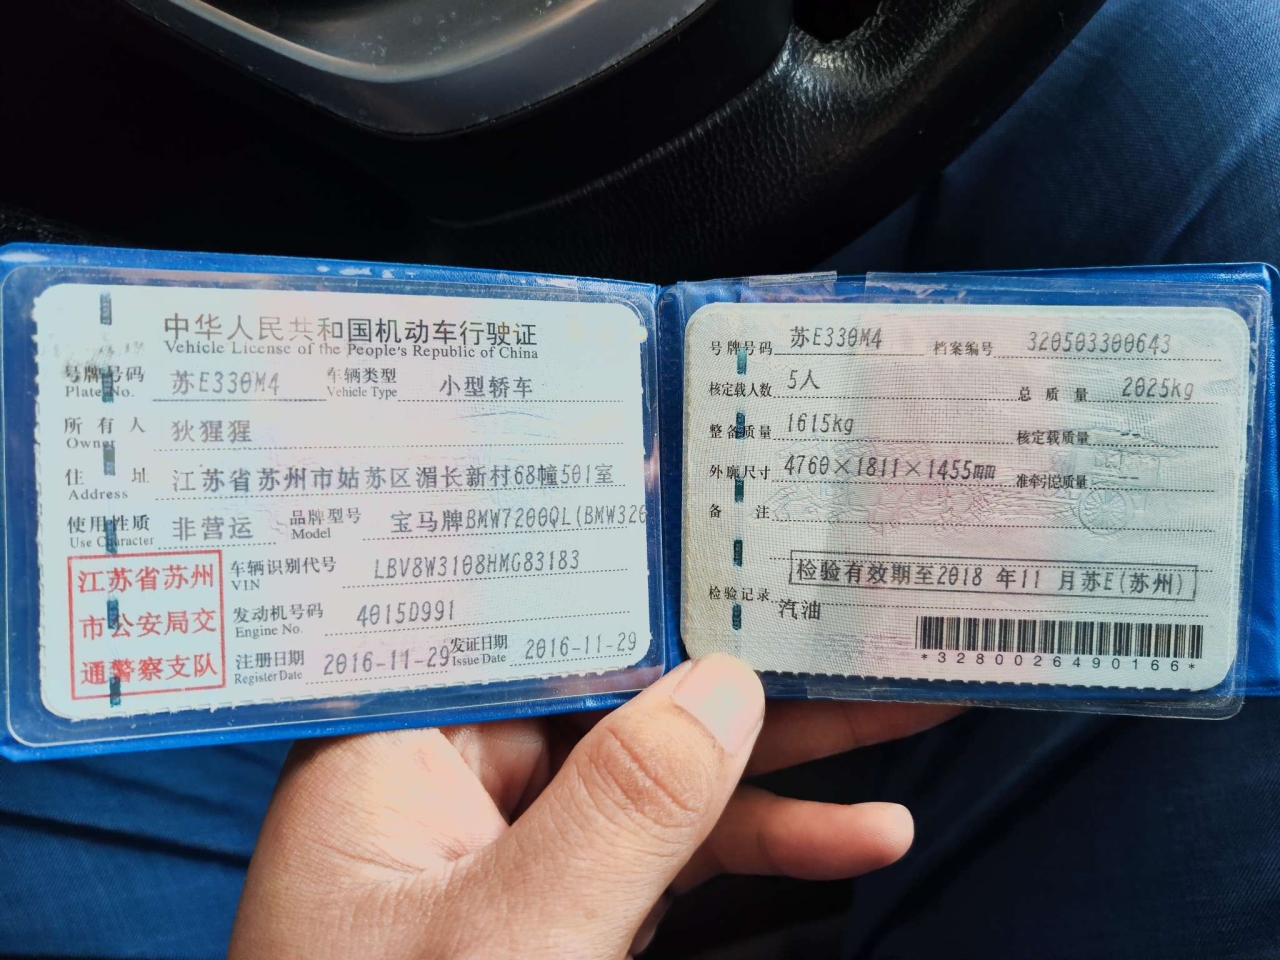 中华人民共和国机动车行驶证
Vehicle License of the People's Republic of China
号牌号码 苏E330M4 车辆类型 小型轿车
Plate No. Vehicle Type
所有人 狄猩猩
Owner
住址 江苏省苏州市姑苏区湄长新村68幢501室
Address
使用性质 非营运 品牌型号 宝马牌BMW7200QL(BMW320
Use Character Model
江苏省苏州
市公安局交
通警察支队
车辆识别代号 LBV8W3108HMG83183
VIN
发动机号码 4015D991
Engine No.
注册日期 2016-11-29 发证日期 2016-11-29
Register Date Issue Date
号牌号码 苏E330M4 档案编号 320503300643
核定载人数 5人 总质量 2025kg
整备质量 1615kg 核定载质量 --
外廓尺寸 4760×1811×1455mm 准牵引总质量 --
备注
检验有效期至2018 年11 月苏E(苏州)
检验记录
汽油
*3280026490166*